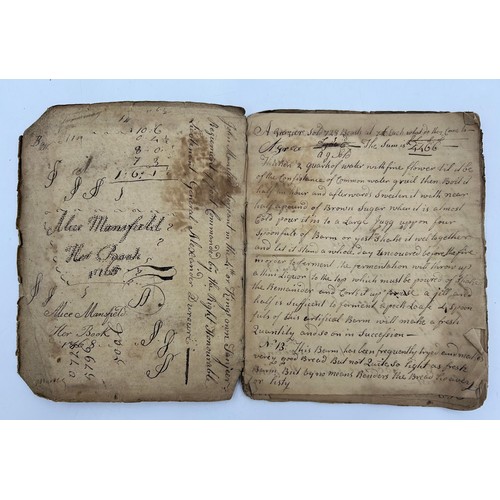 10 6
8 0
7 3
1 6 1
1
Alce Mansfield
Her Book
1768
Alice Mansfield
Her Book
1768
John in the 5th or King's own
Regiment of Commanded by the Right Honourable
Lieutenant General Alexander Durour
A Grasiere Sold 728 Beasts at Each what do they Come to
The Sum is 4466
Thicken 2 quarts of water with fine flower til it be
of the Consistance of Common water gruil then Boil it
half an hour and afterwards Sweeten it with near
half a pound of Brown Sugar when it is almost
Cold pour it in to a Large Jugg upon four
Spoonfuls of Barm or yest Shake it well together
and let it stand a whole day uncovered before the fire
in order to ferment. the fermentation will throw up
a thin Liquor to the top which must be poured of
the Remainder and Cork it up for use a gill and
half is Sufficient to a peck Loaf 4 Spoon
fuls of this artificial Barm will make a fresh
Quantity and so on in Succession
N B This Barm has been frequently try'd and makes
very good Bread But not Quite so light as fresh
Barm, But by no means Renders the Bread heavey
or